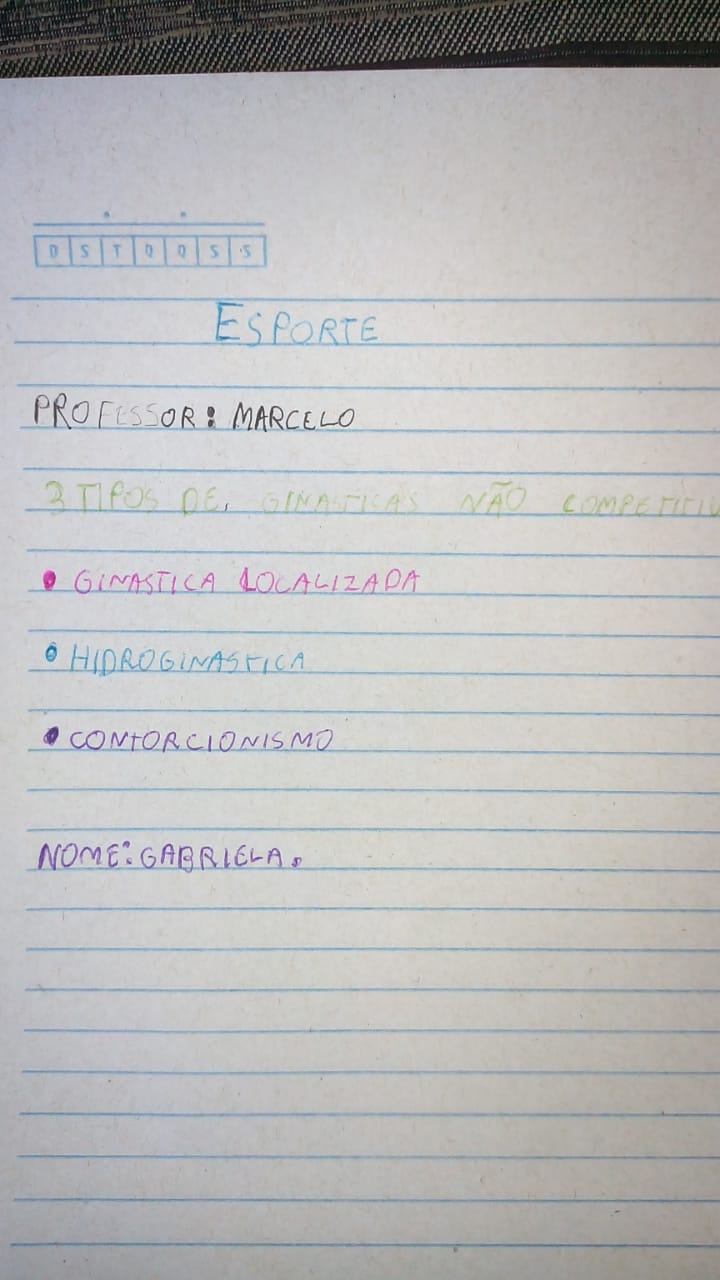 D S T Q Q S S
ESPORTE
PROFESSOR: MARCELO
3 TIPOS DE, GINASTICAS NÃO COMPETITIV
• GINASTICA LOCALIZADA
• HIDROGINASTICA
• CONTORCIONISMO
NOME: GABRIELA.